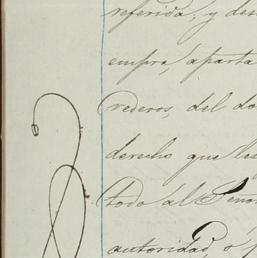 referida, y des
empra, aparta
rederos, del do
derecho que les
todo al Seno
autoridad, o p